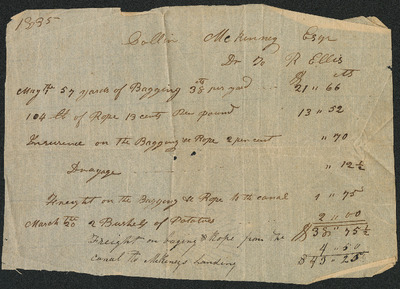 1835
Collin McKinney Esqr
Dr To R Ellis
$ cts
May 7th 57 yards of Bagging 38 cts per yard 21 " 66
104 lb of Rope 13 cents Per pound 13 " 52
Insurence on the Bagging & Rope 2 per cent " 70
Drayage " 12 ½
Freight on the Bagging & Rope to the canal 1 " 75
March 20 2 Bushels of Potatoes 2 " 00
$ 39 " 75 ½
Freight on baging & Rope from the 4 - 50
canal to McKineys Landing $ 43 - 25